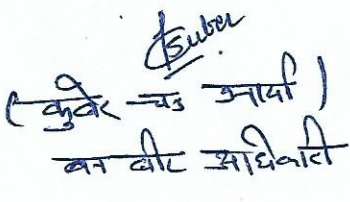 Kuber
(कुबेर चन्द्र आर्या)
वन बीट अधिकारी